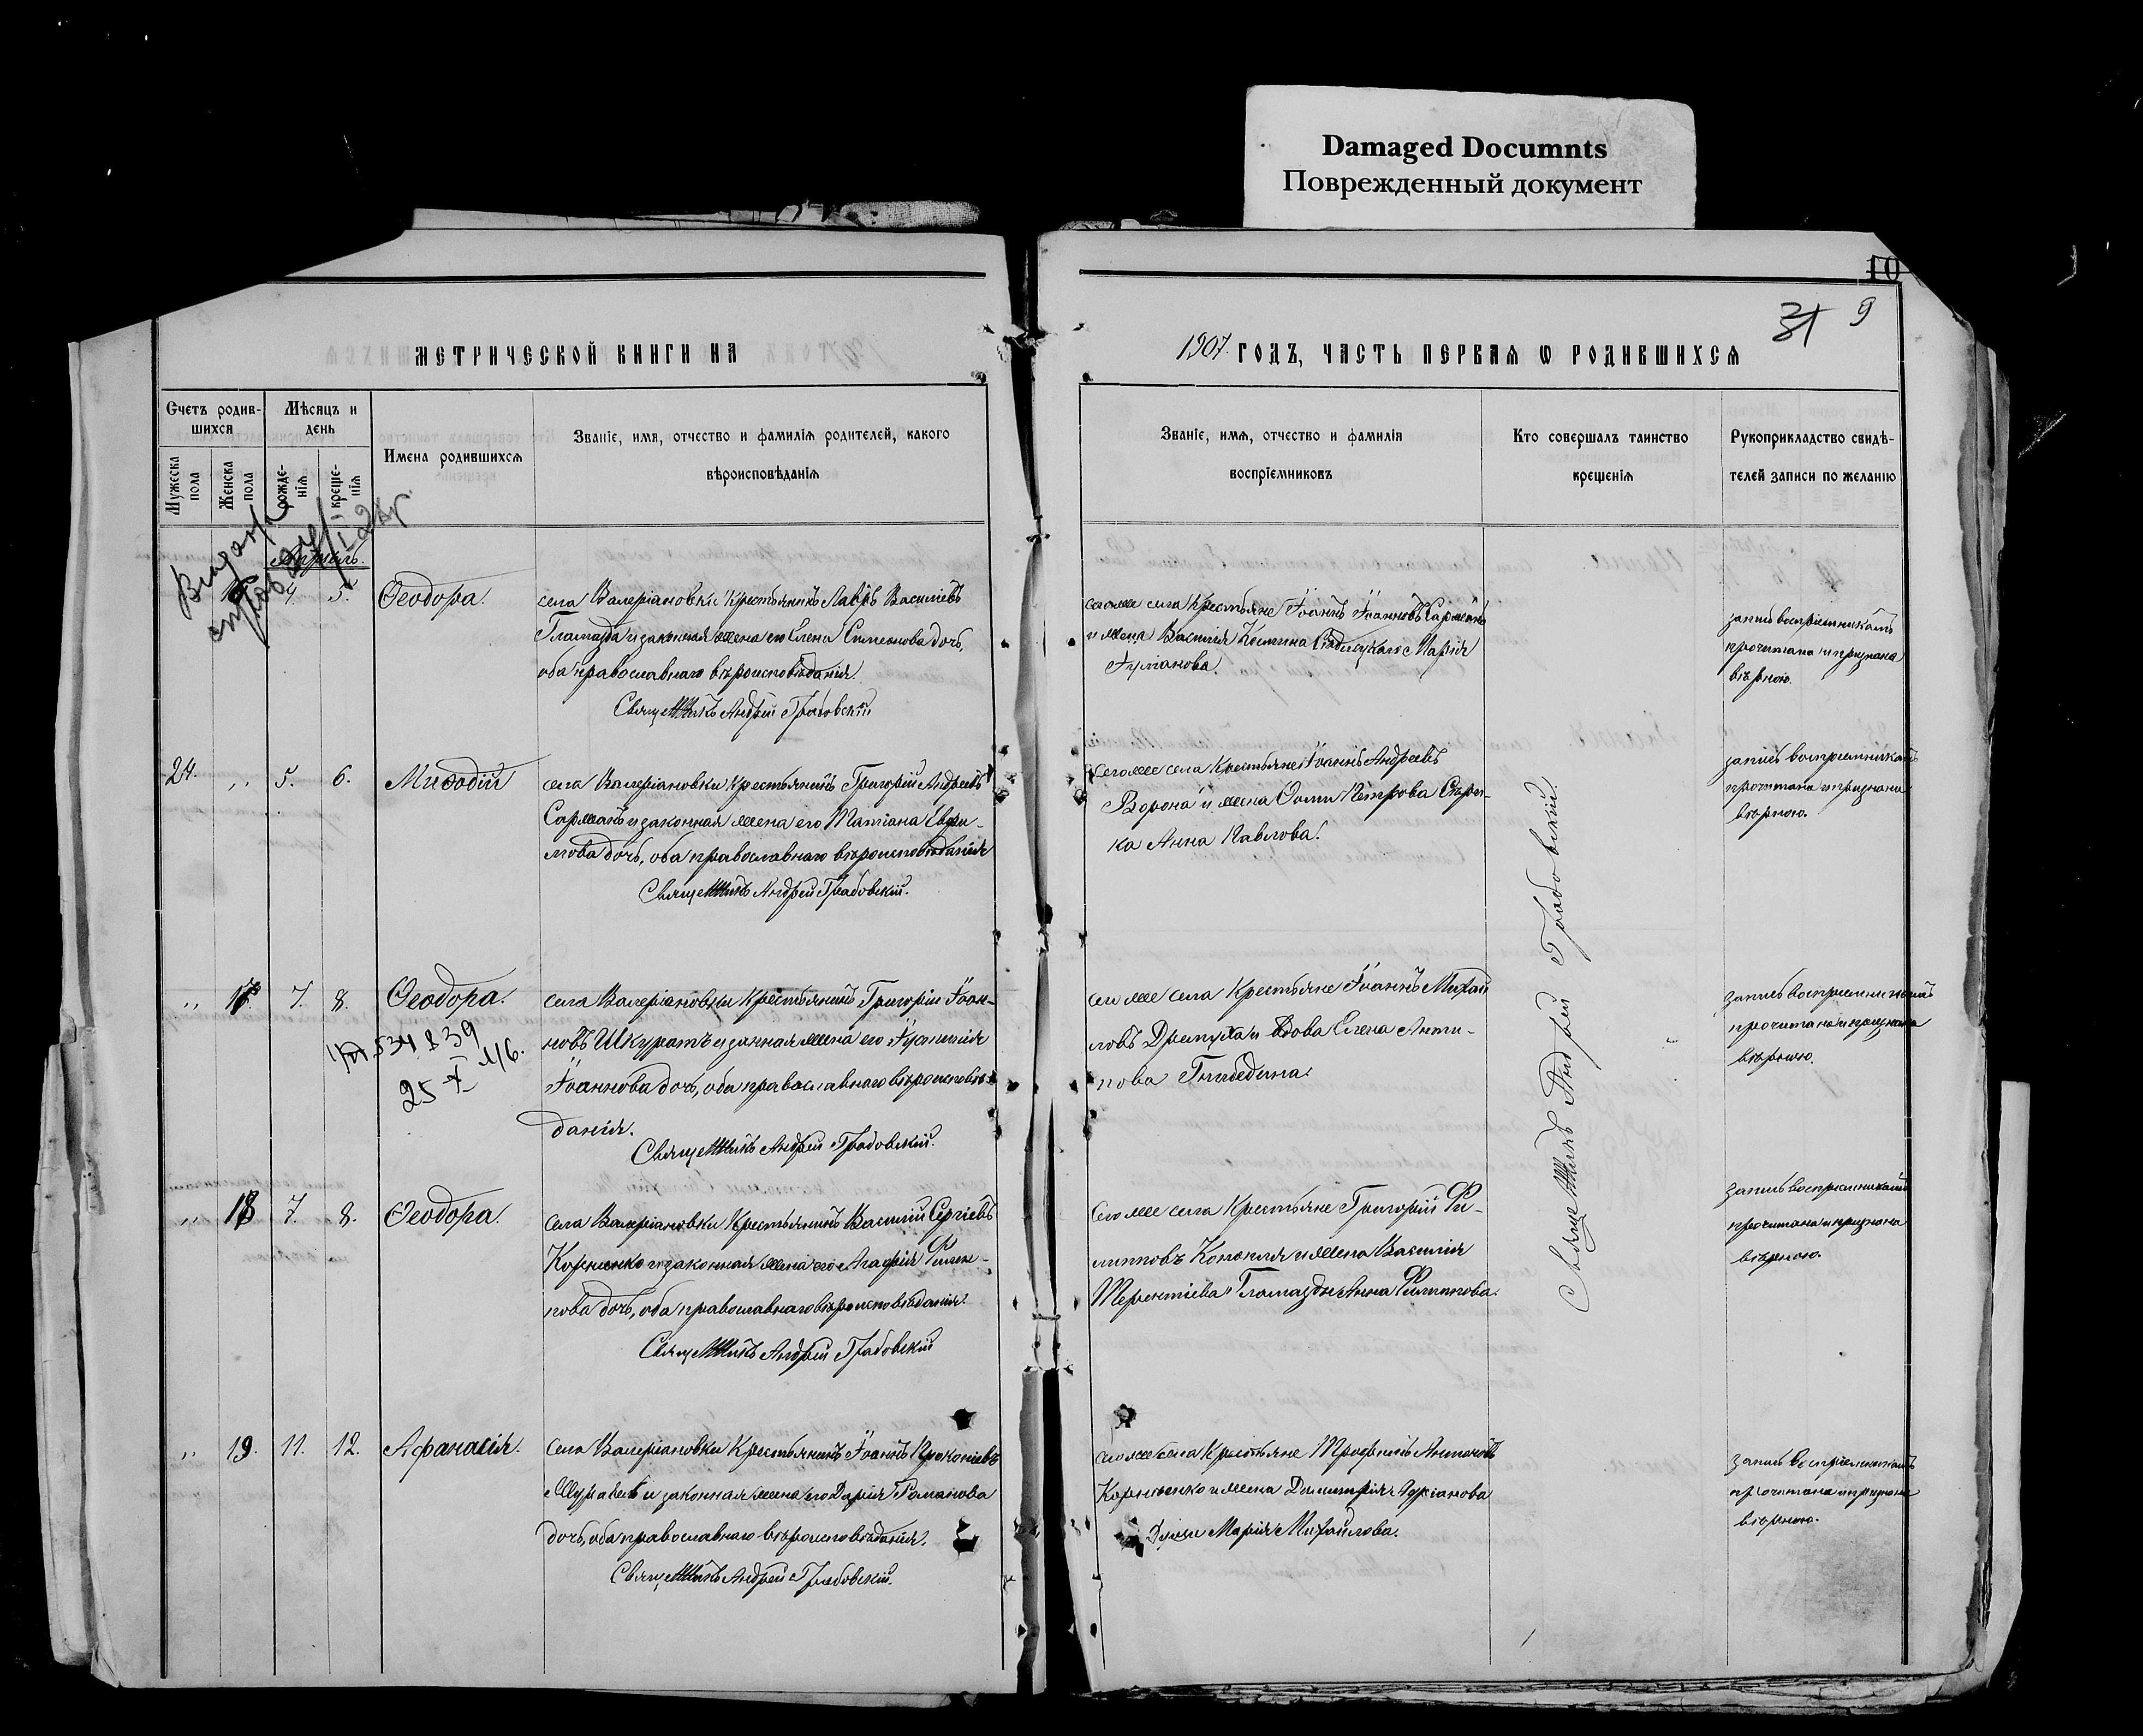 Damaged Documnts
Поврежденный документ
10
31 9
МЕТРИЧЕСКОЙ КНИГИ НА
1907 ГОДЪ, ЧАСТЬ ПЕРВАЯ Ѡ РОДИВШИХСЯ
Счетъ родив-
шихся
Мужеска
пола
Женска
пола
Мѣсяцъ и
день
рожде-
нія
креще-
нія
Имена родившихся
Званіе, имя, отчество и фамилія родителей, какого
вѣроисповѣданія
Званіе, имя, отчество и фамилія
воспріемниковъ
Кто совершалъ таинство
крещенія
Рукоприкладство свидѣ-
телей записи по желанію
Апрѣль.
4. 5. Ѳеодора.
села Валеріановки крестьянинъ Лавръ Василіевъ
и законная жена его Елена Симеонова дочь,
оба православнаго вѣроисповѣданія.
Священникъ Андрей Грабовскій
сего же села крестьяне Іоаннъ Іоанновъ Сарманъ
и жена Василія Марія
запись воспріемникамъ
прочитана и признана
вѣрною.
24. „ 5. 6. Меѳодій
села Валеріановки крестьянинъ Григорій Андреевъ
Сарманъ и законная жена его Татіана Евфи-
мова дочь, оба православнаго вѣроисповѣданія
Священникъ Андрей Грабовскій.
сего же села крестьяне Іоаннъ Андреевъ
Ворона и жена Ѳомы Петрова Скри-
ка Анна Павлова.
запись воспріемникамъ
прочитана и признана
вѣрною.
„ 17. 7. 8. Ѳеодора.
534839
25 X 46.
села Валеріановки крестьянинъ Григорій Іоан-
новъ Шкуратъ и законная жена его Іустинія
Іоаннова дочь, оба православнаго вѣроисповѣ-
данія.
Священникъ Андрей Грабовскій.
сего же села крестьяне Іоаннъ Михаи
ловъ и вдова Елена Анти-
пова
запись воспріемникамъ
прочитана и признана
вѣрною.
„ 18 7. 8. Ѳеодора.
села Валеріановки крестьянинъ Василій Сергіевъ
Корніенко и законная жена его Агафія Филип-
пова дочь, оба православнаго вѣроисповѣданія.
Священникъ Андрей Грабовскій
сего же села крестьяне Григорій Фи-
липповъ и жена Василія
Терентіева Гломазды Анна Филиппова.
запись воспріемникамъ
прочитана и признана
вѣрною.
„ 19. 11. 12. Афанасія.
села Валеріановки крестьянинъ Іоаннъ Прокопіевъ
Журавель и законная жена его Дарія Романова
дочь, оба православнаго вѣроисповѣданія.
Священникъ Андрей Грабовскій.
сего же села крестьяне Трофимъ Антоновъ
Корніенко и жена Димитрія Адріанова
Марія Михайлова.
запись воспріемникамъ
прочитана и признана
вѣрною.
Священникъ Андрей Грабовскій.